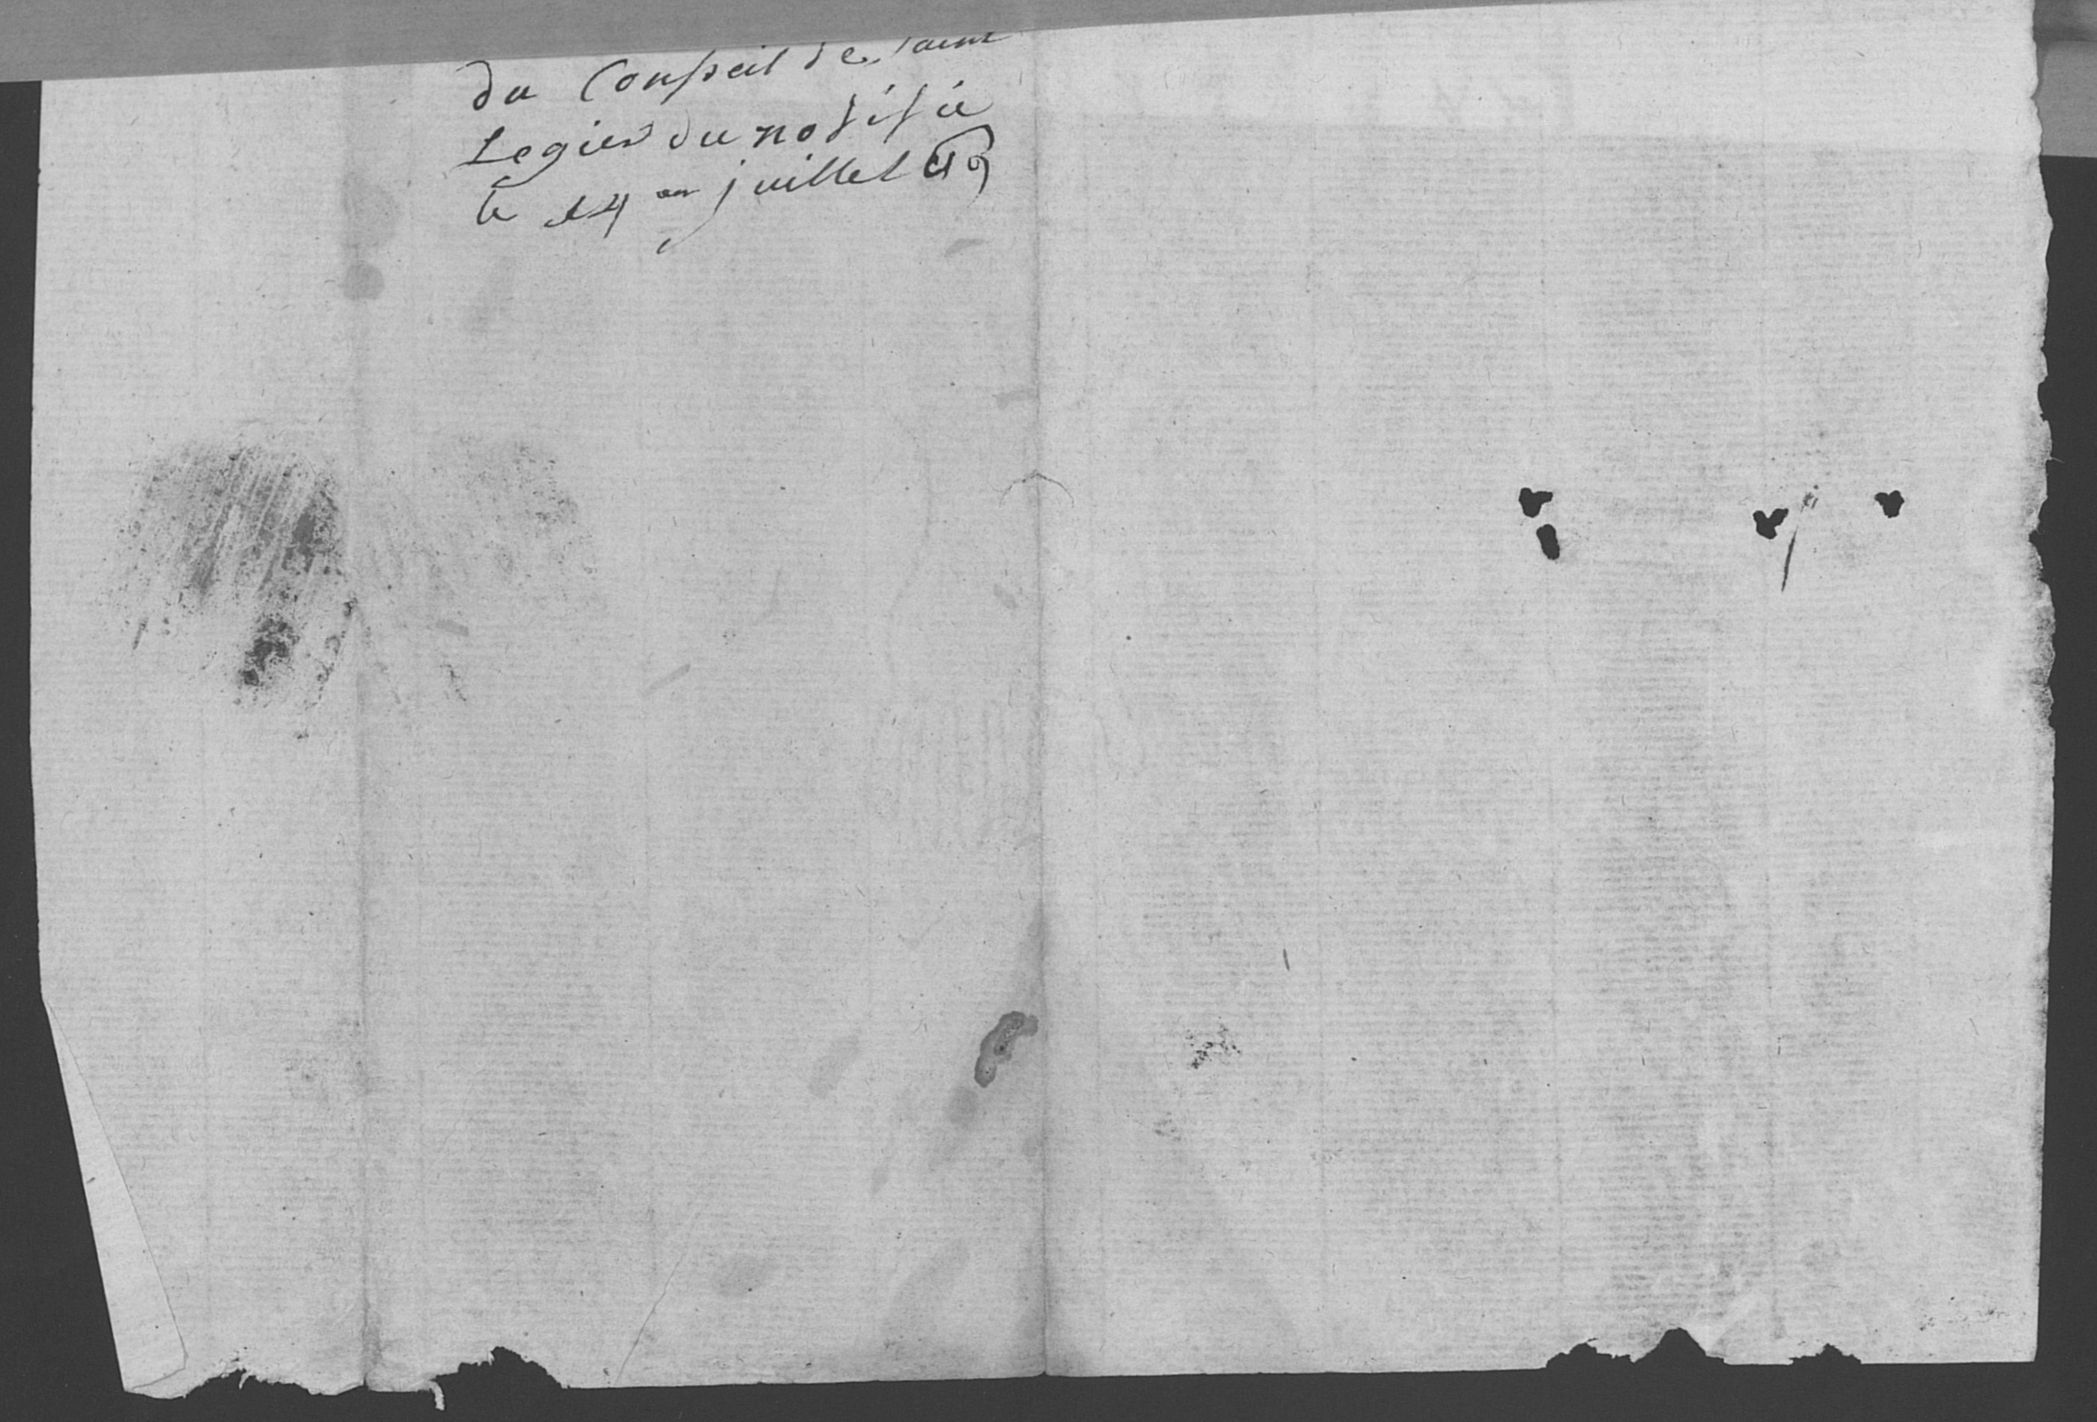 du Conseil de saint
Legier du notifié
le 14 me juillet 49